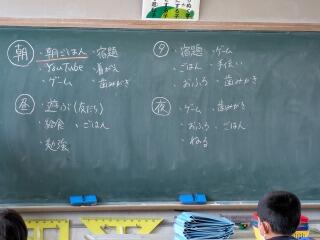 朝 ・朝ごはん ・宿題
・YouTube ・着がえ
・ゲーム ・歯みがき
昼 ・遊ぶ(友だち)
・給食 ・ごはん
・勉強
夕 ・宿題 ・ゲーム
・ごはん ・手伝い
・おふろ ・歯みがき
夜 ・ゲーム ・歯みがき
・おふろ ・ごはん
・ねる